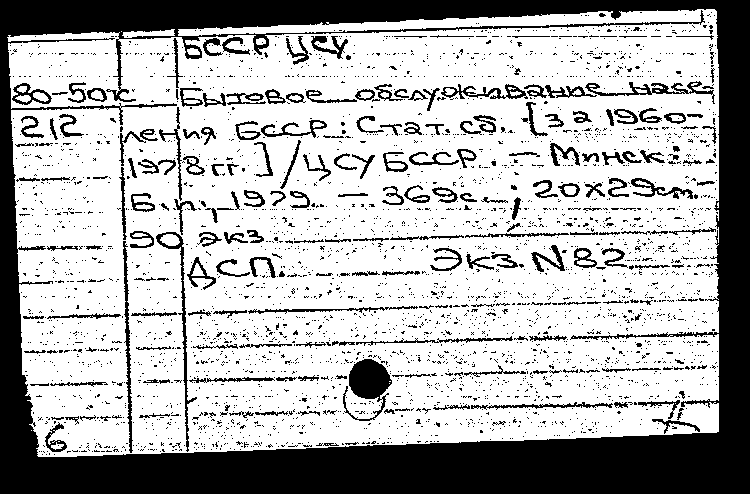 БССР ЦСУ.
80-50к Бытовое обслуживание насе-
212 ления БССР: Стат. сб. [за 1960-
1978 гг.] / ЦСУ БССР. — Минск:
Б.и., 1979. — 369с. ; 20х29см.-
90 экз.
ДСП. Экз. N82
6